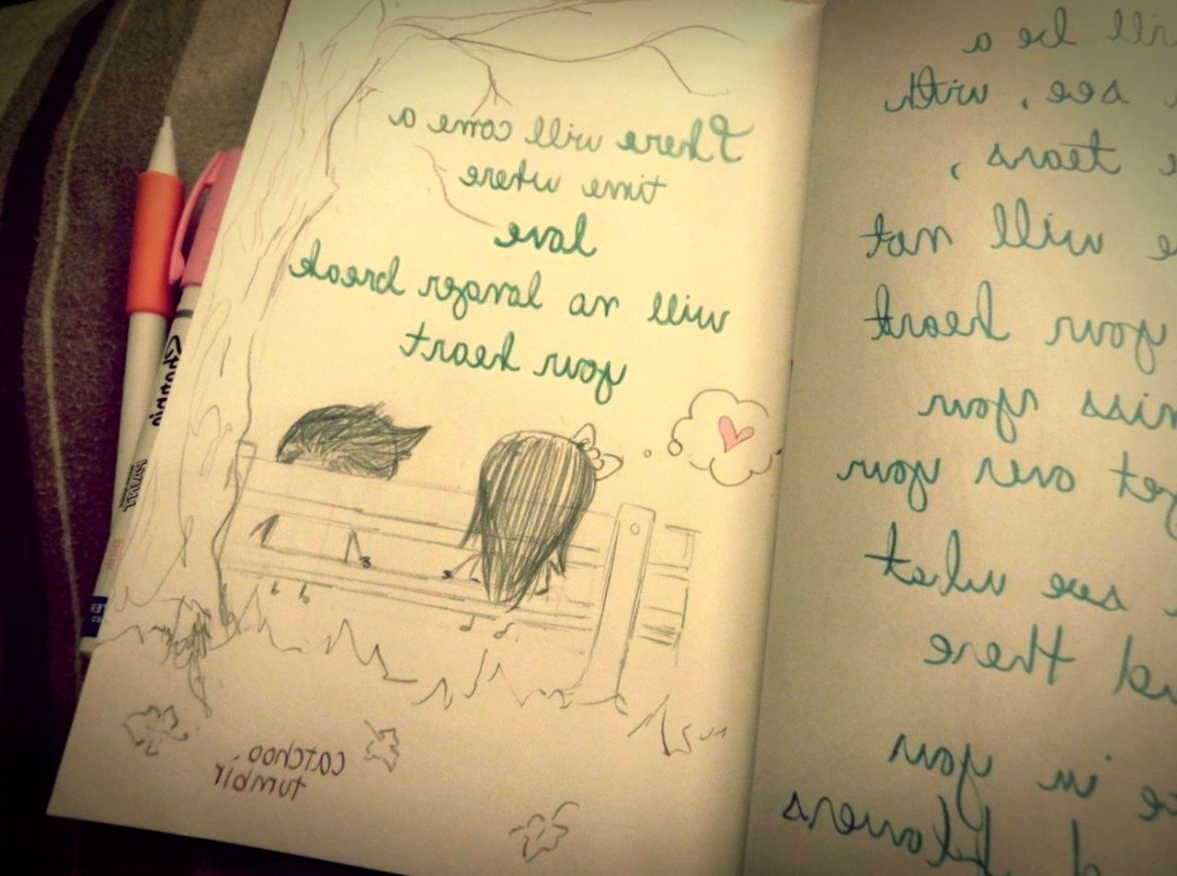 There will come a
time where
love
will no longer break
your heart
catchoo
tumblr
be a
see, with
tears,
will not
your heart
your
over your
see what
there
in your
flowers
Sharpie